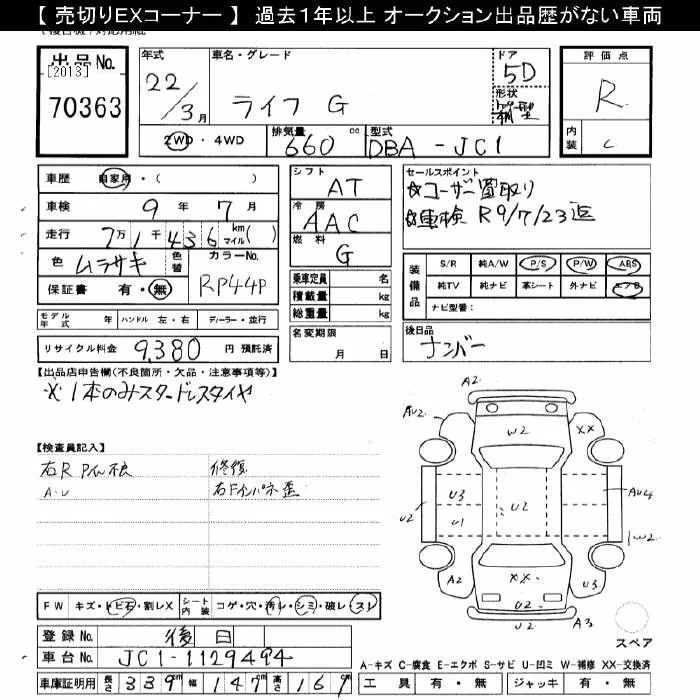 【 売切りEXコーナー 】 過去１年以上 オークション出品歴がない車両
出品No. [2013] 70363
年式 22/3月
車名・グレード ライフ G
ドア 5D
形状
評価点 R
内装 C
2WD・4WD
排気量 660 cc
型式 DBA-JC1
車歴 自家用・( )
車検 9年 7月
走行 7万1千436 km マイル( )
色 ムラサキ 色替 カラーNo. RP44P
保証書 有・無
シフト AT
冷房 AAC
燃料 G
乗車定員 名
積載量 kg
総重量 kg
セールスポイント
☆ユーザー買取り
☆車検 R9/7/23迄
装備品 S/R 純A/W P/S P/W ABS
純TV 純ナビ 革シート 外ナビ エアB
ナビ型番：
モデル年式 年 ハンドル 左・右 ディーラー・並行
リサイクル料金 9,380 円 預託済
名変期限 月 日
後日品 ナンバー
【出品店申告欄(不良箇所・欠品・注意事項等)】
※1本のみスタッドレスタイヤ
【検査員記入】
右R Pイン・ A・U
修復
右Fインパネ歪
A2
AU2
W2
XX
U3
U1
U2
U2
AU4
W2
A2
XX
U3
U2
U2
A3
スペア
FW キズ・トビ石・割レX シート内装 コゲ・穴・汚レ・シミ・破レ・スレ
登録No. 後日
車台No. JC1-1129494
車庫証明用 長さ 339 幅 147 高さ 169
A-キズ C-腐食 E-エクボ S-サビ U-凹ミ W-補修 XX-交換済
工具 有・無 ジャッキ 有・無